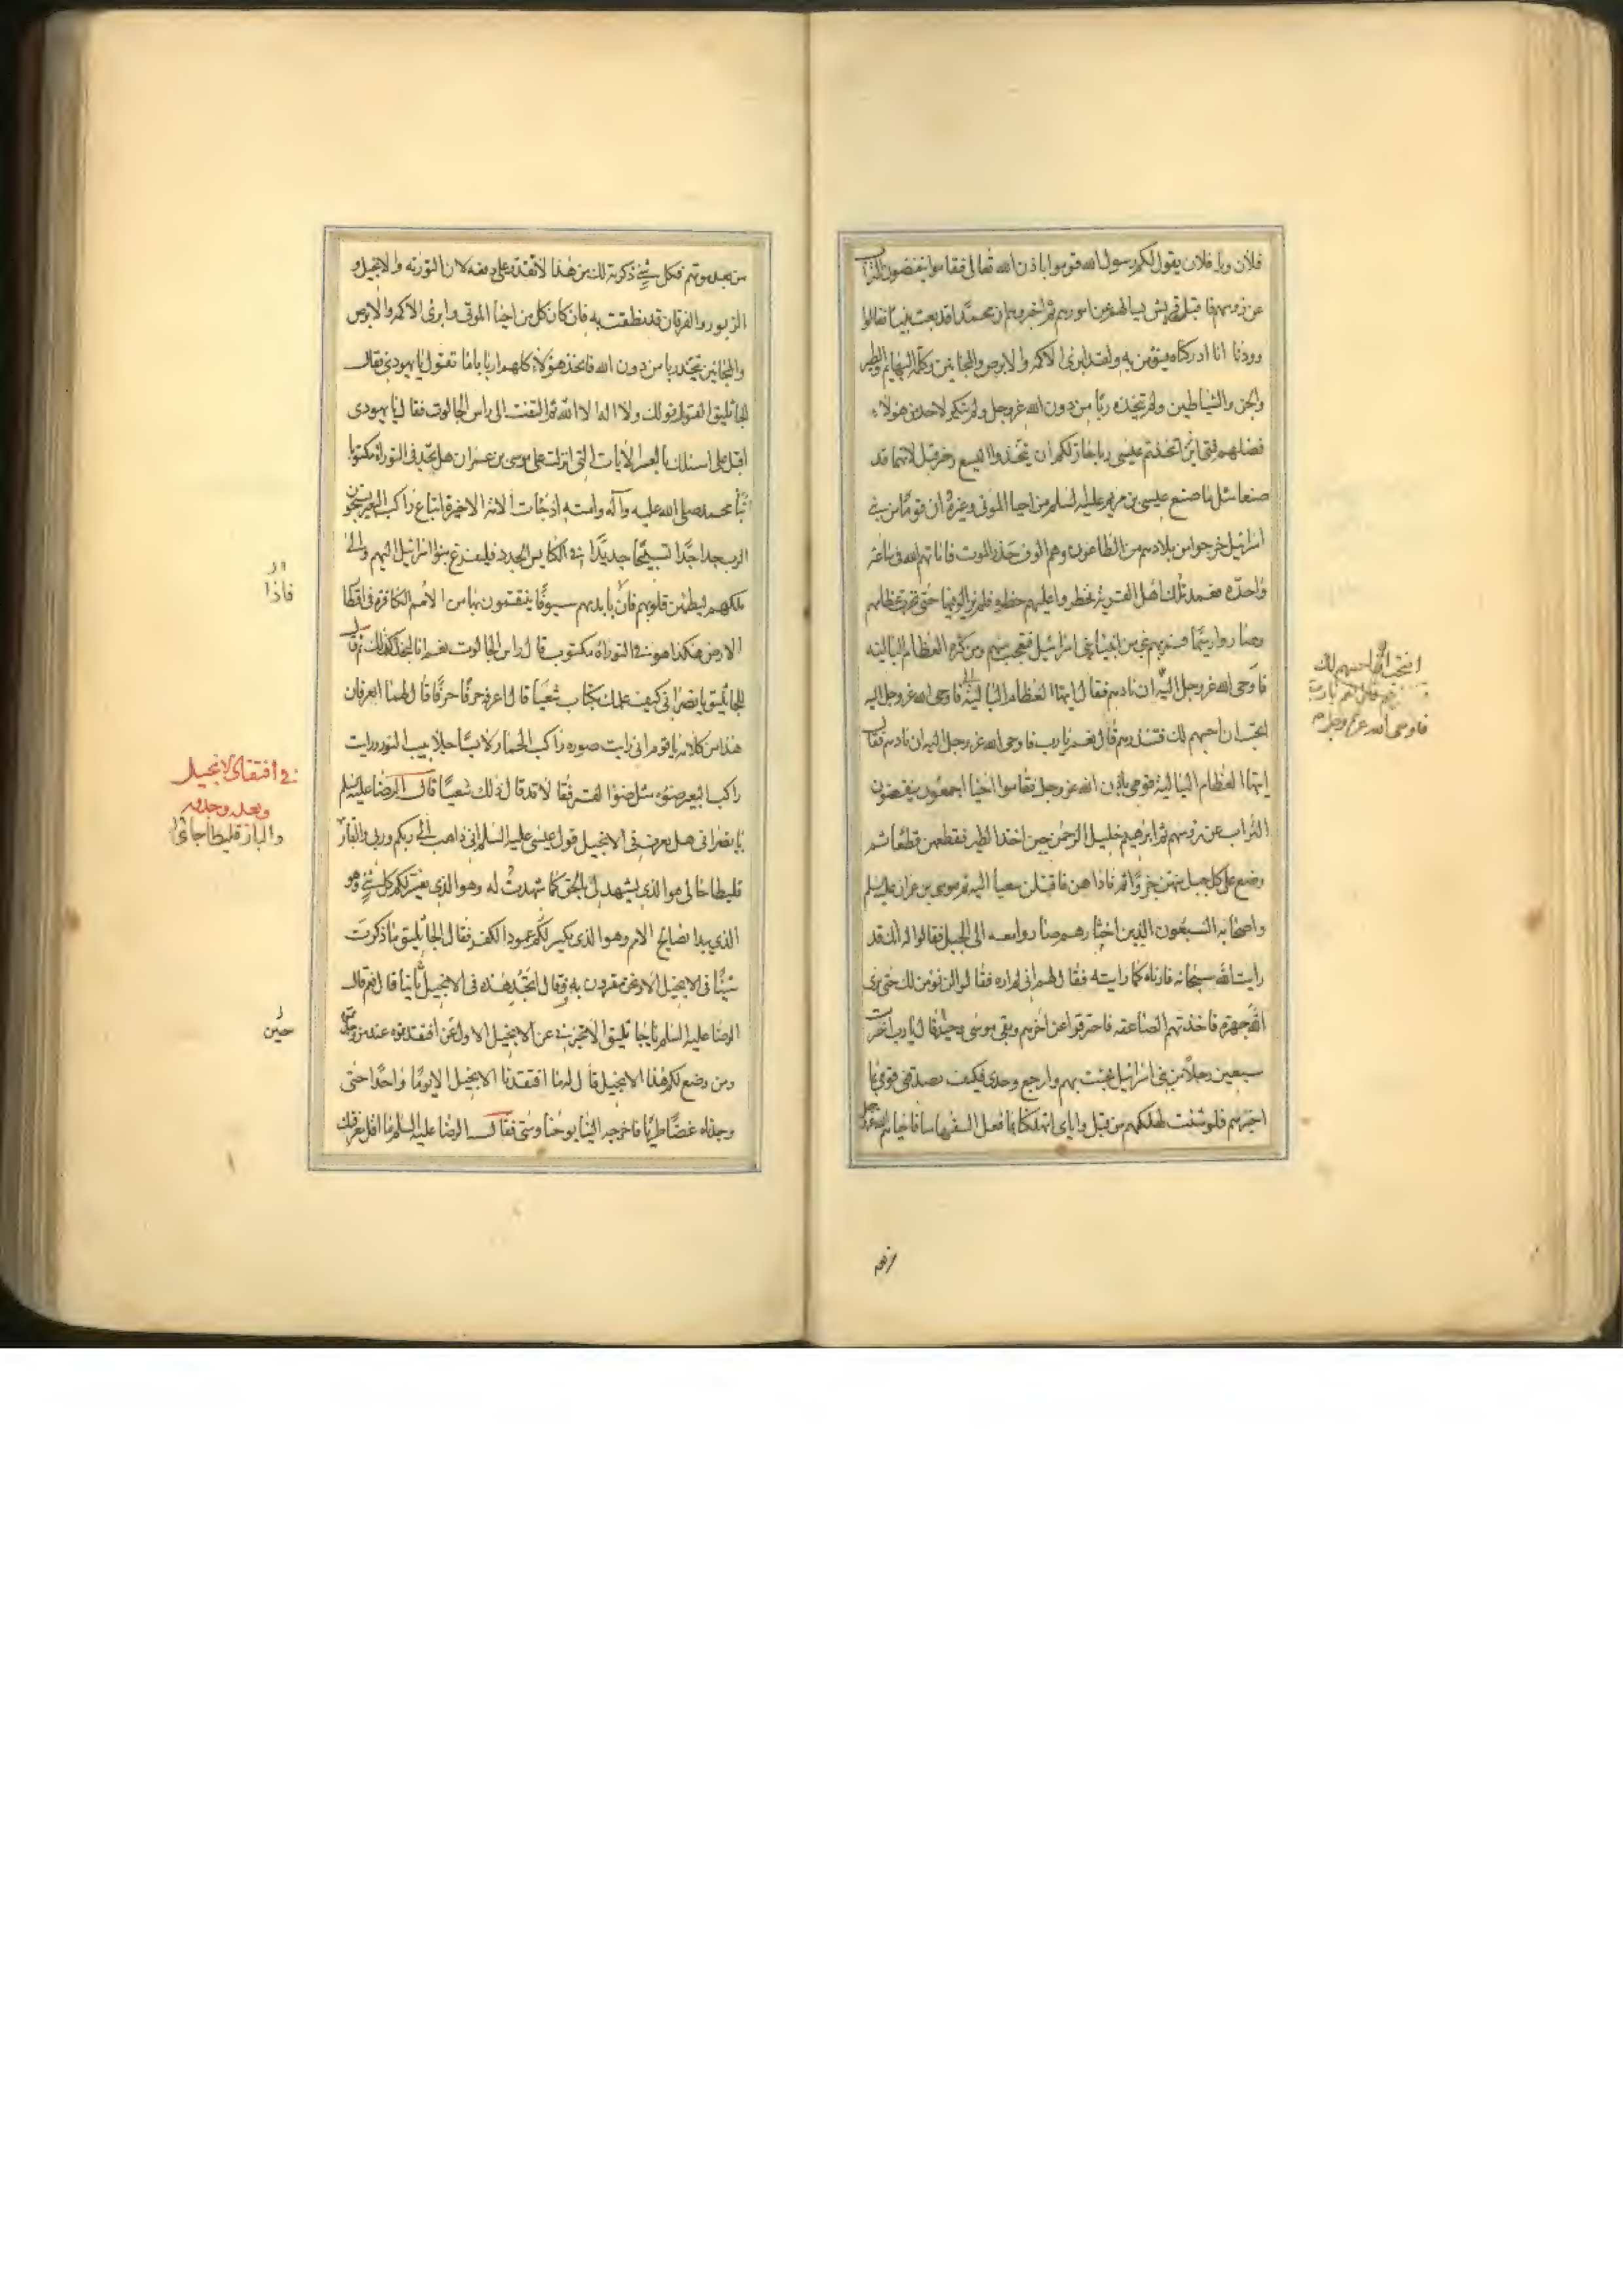 فلان ويا فلان يقول لكم رسول الله قوموا باذن الله تعالى فقاموا ينفضون التراب
عن رؤسهم فاقبل قريش يسالهم عن امورهم ثم اخبروهم ان محمدا قد بعث نبيا فقالوا
وددنا انا ادركناه فنؤمن به ولقد ابرئ الاكمه والابرص والمجانين وكلمه البهايم والطير
والجن والشياطين ولم نتخذه ربا من دون الله عز وجل ولم ننكر لاحد من هؤلاء
فضلهم فمتى اتخذتم عيسى ربا جاز لكم ان تتخذوا اليسع وحزقيل لانهما قد
صنعا مثل ما صنع عيسى بن مريم عليه السلم من احيا الموتى وغيره ان قوما من بني
اسرائيل خرجوا من بلادهم من الطاعون وهم الوف حذر الموت فاماتهم الله في ساعة
واحده فعمد تلك اهل القرية فحظروا عليهم حظيره فلم يزالوا فيها حتى نخرت عظامهم
وصاروا رميما فمر بهم نبي من انبياء بني اسرائيل فتعجب منهم ومن كثره العظام الباليه
فاوحى الله عز وجل اليه ان نادهم فقال ايتها العظام البالية فاوحى الله عز وجل اليه
اتحب ان احييهم لك فتنذرهم قال نعم يا رب فاوحى الله عز وجل اليه ان نادهم فقال
ايتها العظام البالية قومي باذن الله عز وجل فقاموا احيا اجمعون ينفضون
التراب عن رؤسهم ثم ابرهيم خليل الرحمن حين اخذ الطير فقطعهن قطعا ثم
وضع على كل جبل منهن جزوا ثم ناداهن فاقبلن سعيا اليه ثم موسى بن عمران عليه السلم
واصحابه السبعون الذين اختارهم صاروا معه الى الجبل فقالوا له انك قد
رايت الله سبحانه فارناه كما رايته فقال لهم اني لم اره فقالوا لن نؤمن لك حتى نرى
الله جهرة فاخذتهم الصاعقه فاحترقوا عن اخرهم وبقى موسى وحيدا قال يا رب اخترت
سبعين رجلا من بني اسرائيل فجئت بهم وارجع وحدى فكيف يصدقني قومي بما
اخبرهم فلو شئت اهلكتهم من قبل واياى اتهلكنا بما فعل السفهاء منا فاحياهم الله عز وجل
فاوحى الله عز وجل
من بعد موتهم فكل شئ ذكرته لك من هذا لا تقدر على دفعه لان التورته والانجيل و
الزبور والفرقان قد نطقت به فان كان كل من احيا الموتى وابرئ الاكمه والابرص
والمجانين يتخذ ربا من دون الله فاتخذ هؤلاء كلهم اربابا ما تقول يا يهودى فقال
الجاثليق القول قولك ولا اله الا الله ثم التفت الى راس الجالوت فقال يا يهودى
اقبل على اسئلك بالعشر الايات التي انزلت على موسى بن عمران هل تجد في التوراة مكتوبا
نبأ محمد صلى الله عليه وآله وامته اذ جاءت الامة الاخيرة اتباع راكب البعير يسبحون
الرب جدا جدا تسبيحا جديدا في الكنايس الجدد فليفزع بنوا اسرائيل اليهم والى
ملكهم ليطمئن قلوبهم فان بايديهم سيوفا ينتقمون بها من الامم الكافرة في اقطار
الارض هكذا هو في التوراة مكتوب قال راس الجالوت نعم انا لنجد كذلك ثم قال
للجاثليق يا نصراني كيف علمك بكتاب شعيا قال اعرفه حرفا حرفا قال لهما اتعرفان
هذا من كلامه يا قوم اني رايت صوره راكب الحمار لابسا جلابيب النور ورايت
راكب البعير ضوءه مثل ضوء القمر فقالا قد قال ذلك شعيا قال الرضا عليه السلم
يا نصراني هل تعرف في الانجيل قول عيسى عليه السلم اني ذاهب الى ربكم وربي والبار
قليطا جائى هو الذي يشهد لى بالحق كما شهدت له وهو الذي يفسر لكم كل شئ وهو
الذي يبدا فضايح الامم وهو الذي يكسر لكم عمود الكفر فقال الجاثليق ما ذكرت
شيئا في الانجيل الا ونحن مقرون به فقال اتجد هذه في الانجيل ثابتا قال نعم قال
الرضا عليه السلم يا جاثليق الا تخبرني عن الانجيل الاول حين افتقدتموه عند من وجدتموه
ومن وضع لكم هذا الانجيل قال له ما افتقدنا الانجيل الا يوما واحدا حتى
وجدناه غضا طريا فاخرجه الينا يوحنا ومتى فقال الرضا عليه السلم ما اقل معرفتك
فاذا
في افتقاد الانجيل
وبعد وجدانه
والبارقليطا جائى
حين